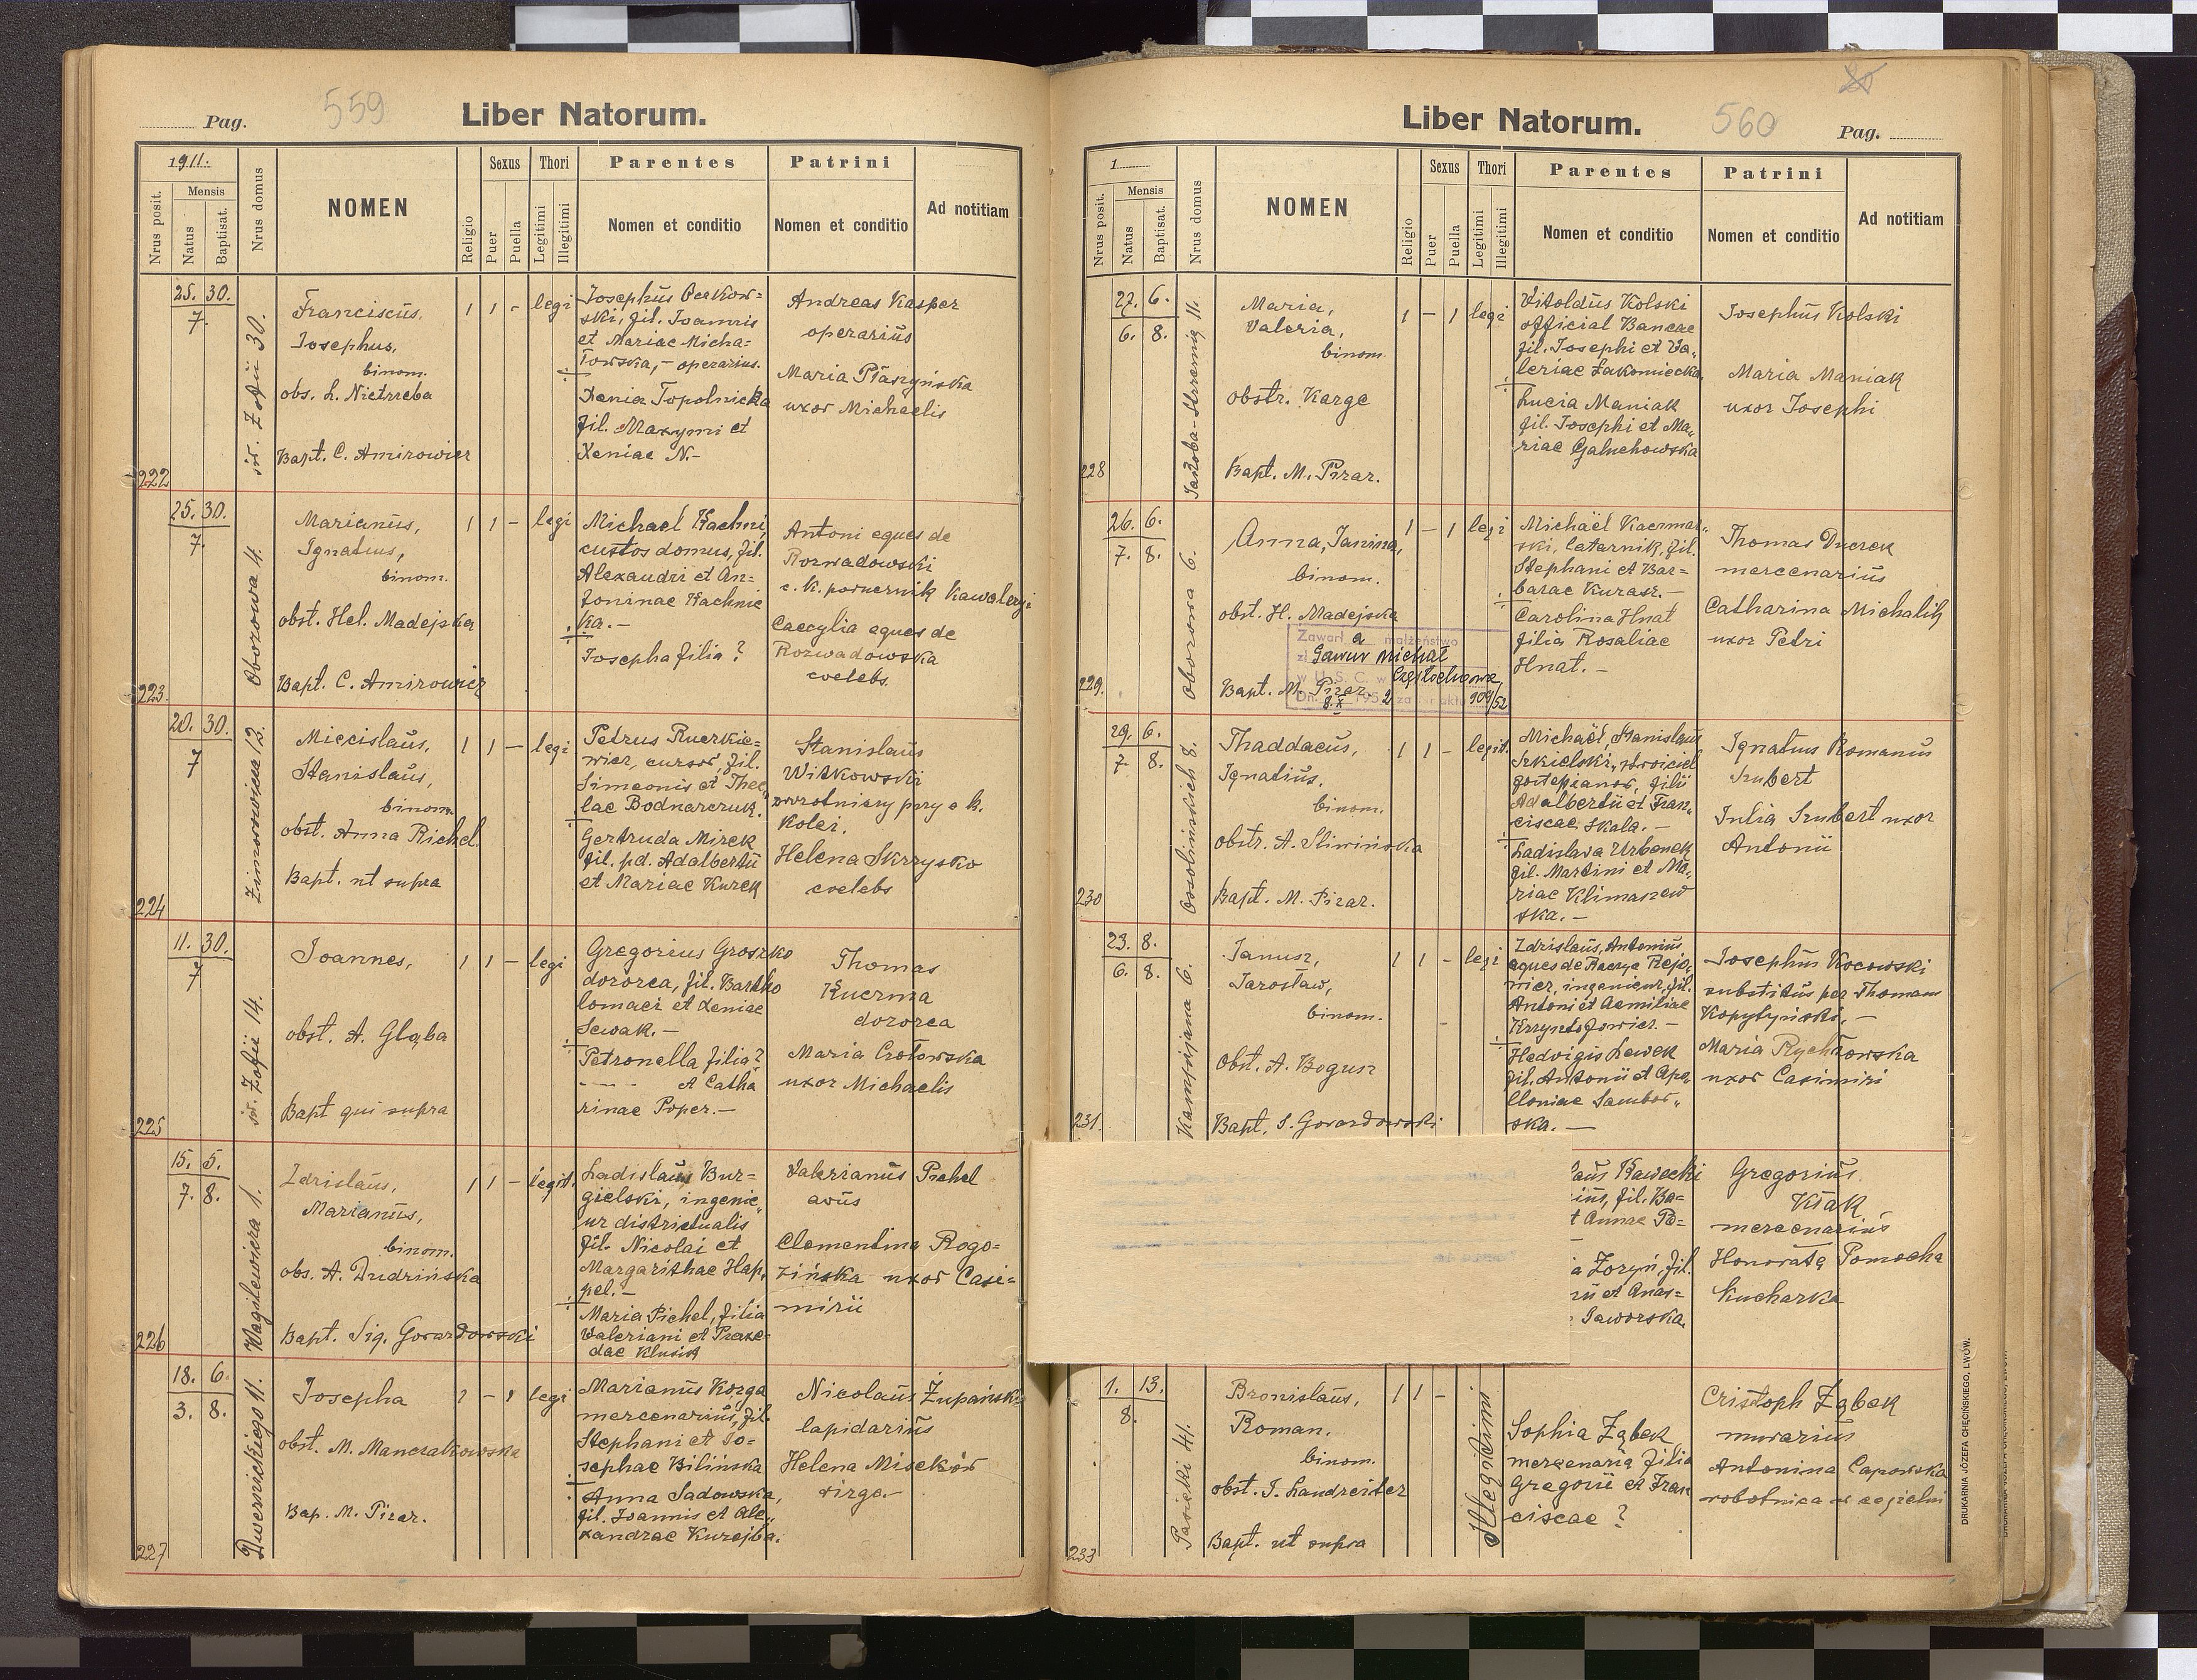 Pag.
559
Liber Natorum.
1911.
Nrus posit.
Mensis
Natus
Baptisat.
Nrus domus
NOMEN
Religio
Sexus
Puer
Puella
Thori
Legitimi
Illegitimi
Parentes
Nomen et conditio
Patrini
Nomen et conditio
Ad notitiam
222
25. 30.
7.
św. Zofii 30.
Franciscus,
Josephus,
binom.
obs. L. Nietrzeba
Bapt. C. Amirowicz
1 1 - legi
ski, fil. Joannis
et Mariae Micha-
łowska, - operarius.
Xenia Topolnicka
fil. Maxymi et
Xeniae N.-
Andreas Kasper
operarius
Maria Ptaszyńska
uxor Michaelis
223
25. 30.
7.
Oborowa 4.
Marianus,
Ignatius,
binom.
obst. Hel. Madejska
Bapt. C. Amirowicz
1 1 - legi
Michael
custos domus, fil.
Alexandri et An-
toninae
ka.-
Josepha filia ?
Antoni eques de
Rozwadowski
c. k. porucznik Kawaleryi
Caecylia eques de
Rozwadowska
coelebs
224
20. 30.
7
Zimorowicza 13.
Miecislaus,
Stanislaus,
binom.
obst. Anna Richel.
Bapt. ut supra
1 1 - legi
Petrus
wicz, cursor, fil.
Simeonis et Thec
lae Bodnarczuk.
Gertruda Mirek
fil. pd. Adalbertii
et Mariae Kurek
Stanislaus
Witkowski
zwrotniczy przy c. k.
Kolei.
Helena Skrzysko
coelebs
225
11. 30.
7
św. Zofii 14.
Joannes,
obst. A. Głąba
Bapt qui supra
1 1 - legi
Gregorius Groszko
dozorca, fil. Bartho
lomaei et Xeniae
Sewak.-
Petronella filia ?
- - - - et Catha
rinae Poper.-
Thomas
Kuczma
dozorca
Maria
uxor Michaelis
226
15. 5.
7. 8.
Wagilewicza 1.
Zdzislaus,
Marianus,
binom.
obs. A. Dudzińska
Bapt. Sig. Gorazdowski
1 1 - legit.
Ladislaus Bur-
gielski, ingenie,,
ur districtualis
fil. Nicolai et
Margarithae Hap,
pel.-
Maria Pichel, filia
Valeriani et Praxe-
dae
Valerianus Pichel
avus
Clementina Rogo-
zińska uxor Casi-
mirii
227
18. 6.
3. 8.
Dwernickiego 11.
Josepha
obst. M. Manczakowska
Bap. M. Pirar.
1 - 1 legi
Marianus Kozga
mercenarius, fil.
Stephani et Jo-
sephae Bilińska
Anna Sadowska,
fil. Joannis et Ale,,
xandrae Kurejba.
Nicolaus Żupański
lapidarius
Helena Miseków
virgo.-
Liber Natorum.
560
Pag.
1
Nrus posit.
Mensis
Natus
Baptisat.
Nrus domus
NOMEN
Religio
Sexus
Puer
Puella
Thori
Legitimi
Illegitimi
Parentes
Nomen et conditio
Patrini
Nomen et conditio
Ad notitiam
228
27. 6.
6. 8.
Maria,
Valeria,
binom.
obstr. Karge
Bapt. M. Pirar.
1 - 1 legi
Vitoldus Kolski
official Bancae
fil. Josephi et Va,,
leriae Zakomiecka,
Lucia Maniak
fil. Josephi et Ma,,
riae Galuchowska
Josephus Kolski
Maria Maniak
uxor Josephi
229.
26. 6.
7. 8.
Oborowa 6.
Anna, Janina,
binom.
obst. H. Madejska
Bapt. M. Pirar.
Zawarł a małżeństwo
z Gawur Michał
w U. S. C. w Częstochowa
Dn. 8.X 1952 za nr aktu 909/52
1 - 1 legi
Michaël Kaczmar,,
ski, latarnik, fil.
Stephani et Bar-
barae Kurasz.-
Carolina Hnat
filia Rosaliae
Hnat.-
Thomas Duczek
mercenarius
Catharina Michalik
uxor Petri
230
29. 6.
7. 8.
Ossolińskich 8.
Thaddaeus,
Ignatius,
binom.
obstr. A. Śliwińska
Bapt. M. Pirar.
1 1 - legit.
Michaël, Stanislaus
Szkielski, stroiciel
fortepianów, filii
Adalbertii et Fran,,
ciscae Skala.-
Ladislava Urbanek
fil. Martini et Ma,,
riae Klimaszew
ska.-
Ignatius Romanus
Szubert
Julia Szubert uxor
Antonii
231.
23. 8.
6. 8.
Kampijana 6.
Janusz,
Jarosław,
binom.
Obst. A. Bogusz
Bapt. S. Gorazdowski
1 1 - legi
Zdzislaus, Antonius
eques de
wicz, ingenieur, fil.
Antoni et Aemiliae
Hedvigis Lewek
fil. Antonii et Apo,
lloniae Sambor,,
ska.-
Josephus Kocowski
substitus per Thomam
Kopytyński.-
Maria Rychłowska
uxor Casimiri
aus Kawecki
ius, fil. Ba-
t Annae Po-
a Zoryń, fil.
rii et Anas-
Jaworska.
Gregorius
Kłak
mercenarius
Honorata Pomocha
Kucharka
233
1. 13.
8.
Pasieki 41.
Bronislaus,
Roman.
binom.
obst. J. Landreiter
Bapt. ut supra
1 1 -
Illegitimi
Sophia Ząbek
mercenaria filia
Gregorii et Fran
ciscae ?
Cristoph Ząbek
murarius
Antonina Capowska
robotnica w cegielni
DRUKARNIA JÓZEFA CHĘCIŃSKIEGO, LWÓW.